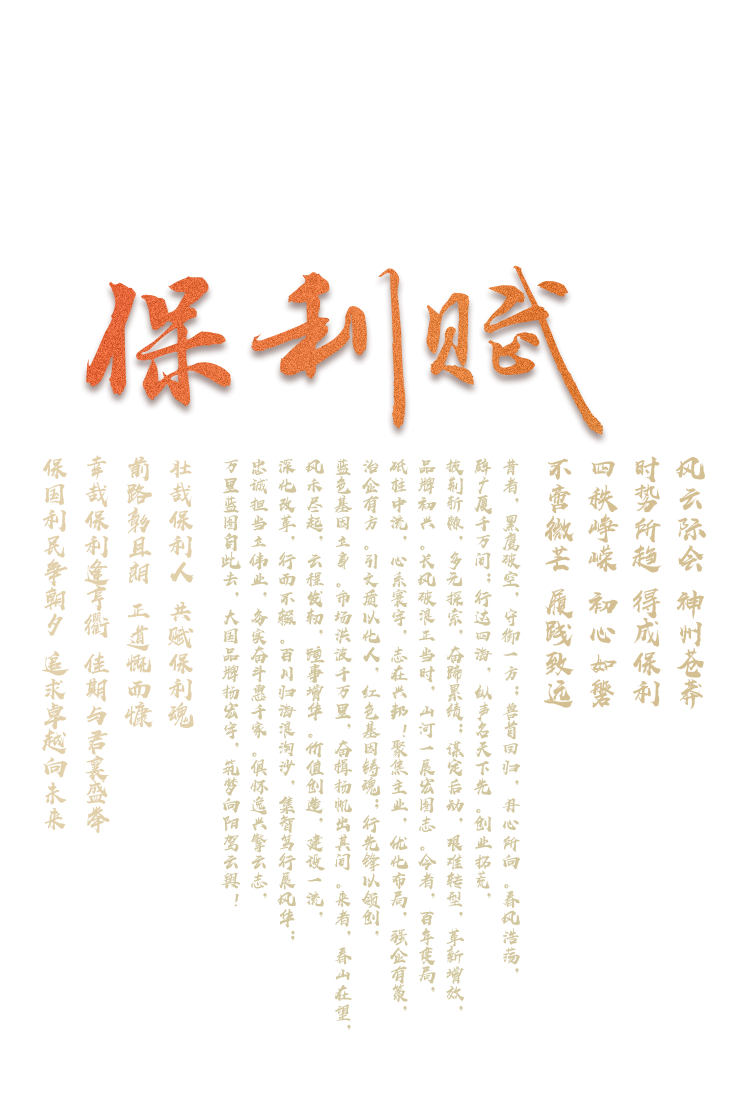 保利赋
风云际会 神州苍莽
时势所趋 得成保利
四秩峥嵘 初心如磐
不啻微芒 履践致远
昔者，黑鹰破空，守御一方；兽首回归，丹心所向。春风浩荡，
辟广厦千万间；行达四海，纵声名天下先。创业拓荒，
披荆斩棘，多元探索，奋蹄累绩；谋定后动，艰难转型，革新增放，
品牌初兴。长风破浪正当时，山河一展宏图志。今者，百年变局，
砥柱中流，心系寰宇，志在兴邦！聚焦主业，优化布局，强企有策，
治企有方。引文蕴以化人，红色基因铸魂；行先锋以领创，
蓝色基因立身。市场洪波千万里，奋楫扬帆出其间。来者，春山在望，
风帆尽起，云程发轫，踵事增华。价值创造，建设一流，
深化改革，行而不辍。百川归海浪淘沙，集智笃行展风华；
忠诚担当立伟业，务实奋斗惠千家。俱怀逸兴擎云志，
万里蓝图自此去，大国品牌扬宏宇，筑梦向阳驾云舆！
壮哉保利人 共赋保利魂
前路彰且朗 正道慨而慷
幸哉保利逢亨衢 佳期与君襄盛举
保国利民争朝夕 追求卓越向未来